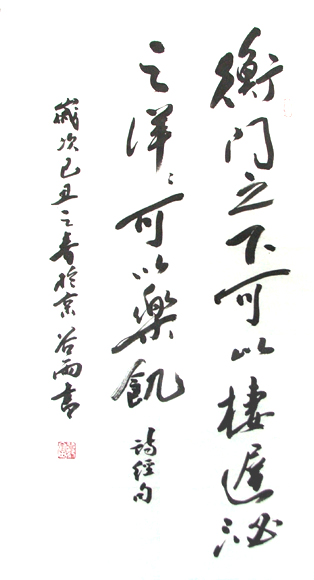 衡門之下可以棲遲泌
之洋〻可以樂飢 詩經句
歲次己丑之春於京 谷雨書